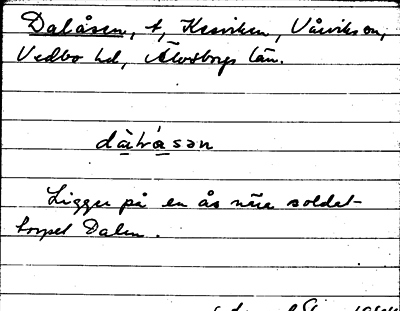 Dalåsen, t, Kesviken, Vårviks sn,
Vedbo hd, Älvsborgs län.
Ligger på en ås nära soldat-
torpet Dalen.